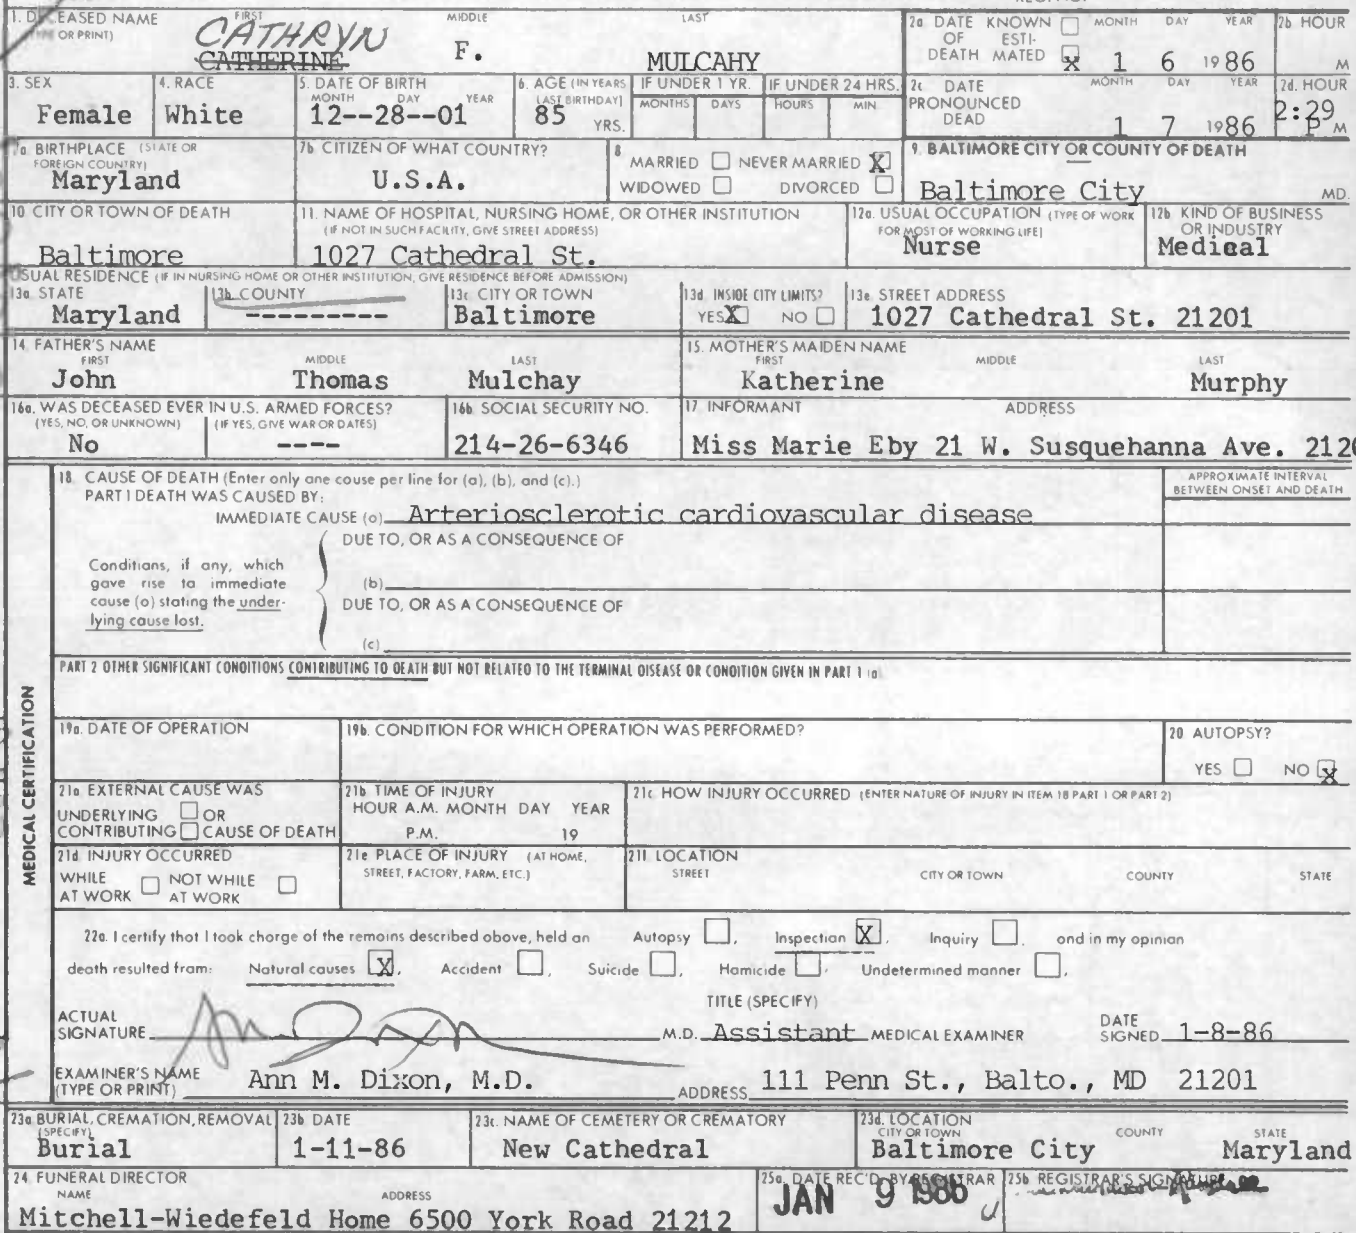 1. DECEASED NAME FIRST MIDDLE LAST
(TYPE OR PRINT)
CATHRYN
CATHERINE F. MULCAHY
2a DATE KNOWN OF ESTI- DEATH MATED X MONTH DAY YEAR
1 6 1986
2b HOUR
M
3. SEX
Female
4. RACE
White
5. DATE OF BIRTH
MONTH DAY YEAR
12--28--01
6. AGE (IN YEARS LAST BIRTHDAY)
85 YRS.
IF UNDER 1 YR.
MONTHS DAYS
IF UNDER 24 HRS.
HOURS MIN
2c DATE PRONOUNCED DEAD MONTH DAY YEAR
1 7 1986
2d. HOUR
2:29 P M
7a BIRTHPLACE (STATE OR FOREIGN COUNTRY)
Maryland
7b CITIZEN OF WHAT COUNTRY?
U.S.A.
8
MARRIED NEVER MARRIED X
WIDOWED DIVORCED
9. BALTIMORE CITY OR COUNTY OF DEATH
Baltimore City MD.
10 CITY OR TOWN OF DEATH
Baltimore
11. NAME OF HOSPITAL, NURSING HOME, OR OTHER INSTITUTION
(IF NOT IN SUCH FACILITY, GIVE STREET ADDRESS)
1027 Cathedral St.
12a. USUAL OCCUPATION (TYPE OF WORK FOR MOST OF WORKING LIFE)
Nurse
12b KIND OF BUSINESS OR INDUSTRY
Medical
USUAL RESIDENCE (IF IN NURSING HOME OR OTHER INSTITUTION, GIVE RESIDENCE BEFORE ADMISSION)
13a STATE
Maryland
13b COUNTY
---------
13c CITY OR TOWN
Baltimore
13d INSIDE CITY LIMITS?
YES X NO
13e STREET ADDRESS
1027 Cathedral St. 21201
14 FATHER'S NAME
FIRST MIDDLE LAST
John Thomas Mulchay
15. MOTHER'S MAIDEN NAME
FIRST MIDDLE LAST
Katherine Murphy
16a. WAS DECEASED EVER IN U.S. ARMED FORCES?
(YES, NO, OR UNKNOWN) (IF YES, GIVE WAR OR DATES)
No ----
16b SOCIAL SECURITY NO.
214-26-6346
17 INFORMANT ADDRESS
Miss Marie Eby 21 W. Susquehanna Ave.
MEDICAL CERTIFICATION
18. CAUSE OF DEATH (Enter only one cause per line for (a), (b), and (c).)
PART I DEATH WAS CAUSED BY:
APPROXIMATE INTERVAL BETWEEN ONSET AND DEATH
IMMEDIATE CAUSE (a) Arteriosclerotic cardiovascular disease
DUE TO, OR AS A CONSEQUENCE OF
Conditions, if any, which
gave rise to immediate
cause (a) stating the under-
lying cause last.
(b)
DUE TO, OR AS A CONSEQUENCE OF
(c)
PART 2 OTHER SIGNIFICANT CONDITIONS CONTRIBUTING TO DEATH BUT NOT RELATED TO THE TERMINAL DISEASE OR CONDITION GIVEN IN PART 1 (a)
19a. DATE OF OPERATION
19b. CONDITION FOR WHICH OPERATION WAS PERFORMED?
20 AUTOPSY?
YES NO X
21a EXTERNAL CAUSE WAS
UNDERLYING OR
CONTRIBUTING CAUSE OF DEATH
21b TIME OF INJURY
HOUR A.M. MONTH DAY YEAR
P.M. 19
21c HOW INJURY OCCURRED (ENTER NATURE OF INJURY IN ITEM 18 PART 1 OR PART 2)
21d INJURY OCCURRED
WHILE AT WORK NOT WHILE AT WORK
21e PLACE OF INJURY (AT HOME, STREET, FACTORY, FARM, ETC.)
21f LOCATION
STREET CITY OR TOWN COUNTY STATE
22a. I certify that I took charge of the remains described above, held an Autopsy , Inspection X , Inquiry , and in my opinion
death resulted from: Natural causes X , Accident , Suicide , Homicide , Undetermined manner ,
TITLE (SPECIFY)
ACTUAL SIGNATURE M.D. Assistant MEDICAL EXAMINER DATE SIGNED 1-8-86
EXAMINER'S NAME (TYPE OR PRINT) Ann M. Dixon, M.D. ADDRESS 111 Penn St., Balto., MD 21201
23a BURIAL, CREMATION, REMOVAL (SPECIFY)
Burial
23b DATE
1-11-86
23c. NAME OF CEMETERY OR CREMATORY
New Cathedral
23d. LOCATION
CITY OR TOWN COUNTY STATE
Baltimore City Maryland
24 FUNERAL DIRECTOR
NAME ADDRESS
Mitchell-Wiedefeld Home 6500 York Road 21212
25a. DATE REC'D. BY REGISTRAR
JAN 9 1986
25b REGISTRAR'S SIGNATURE